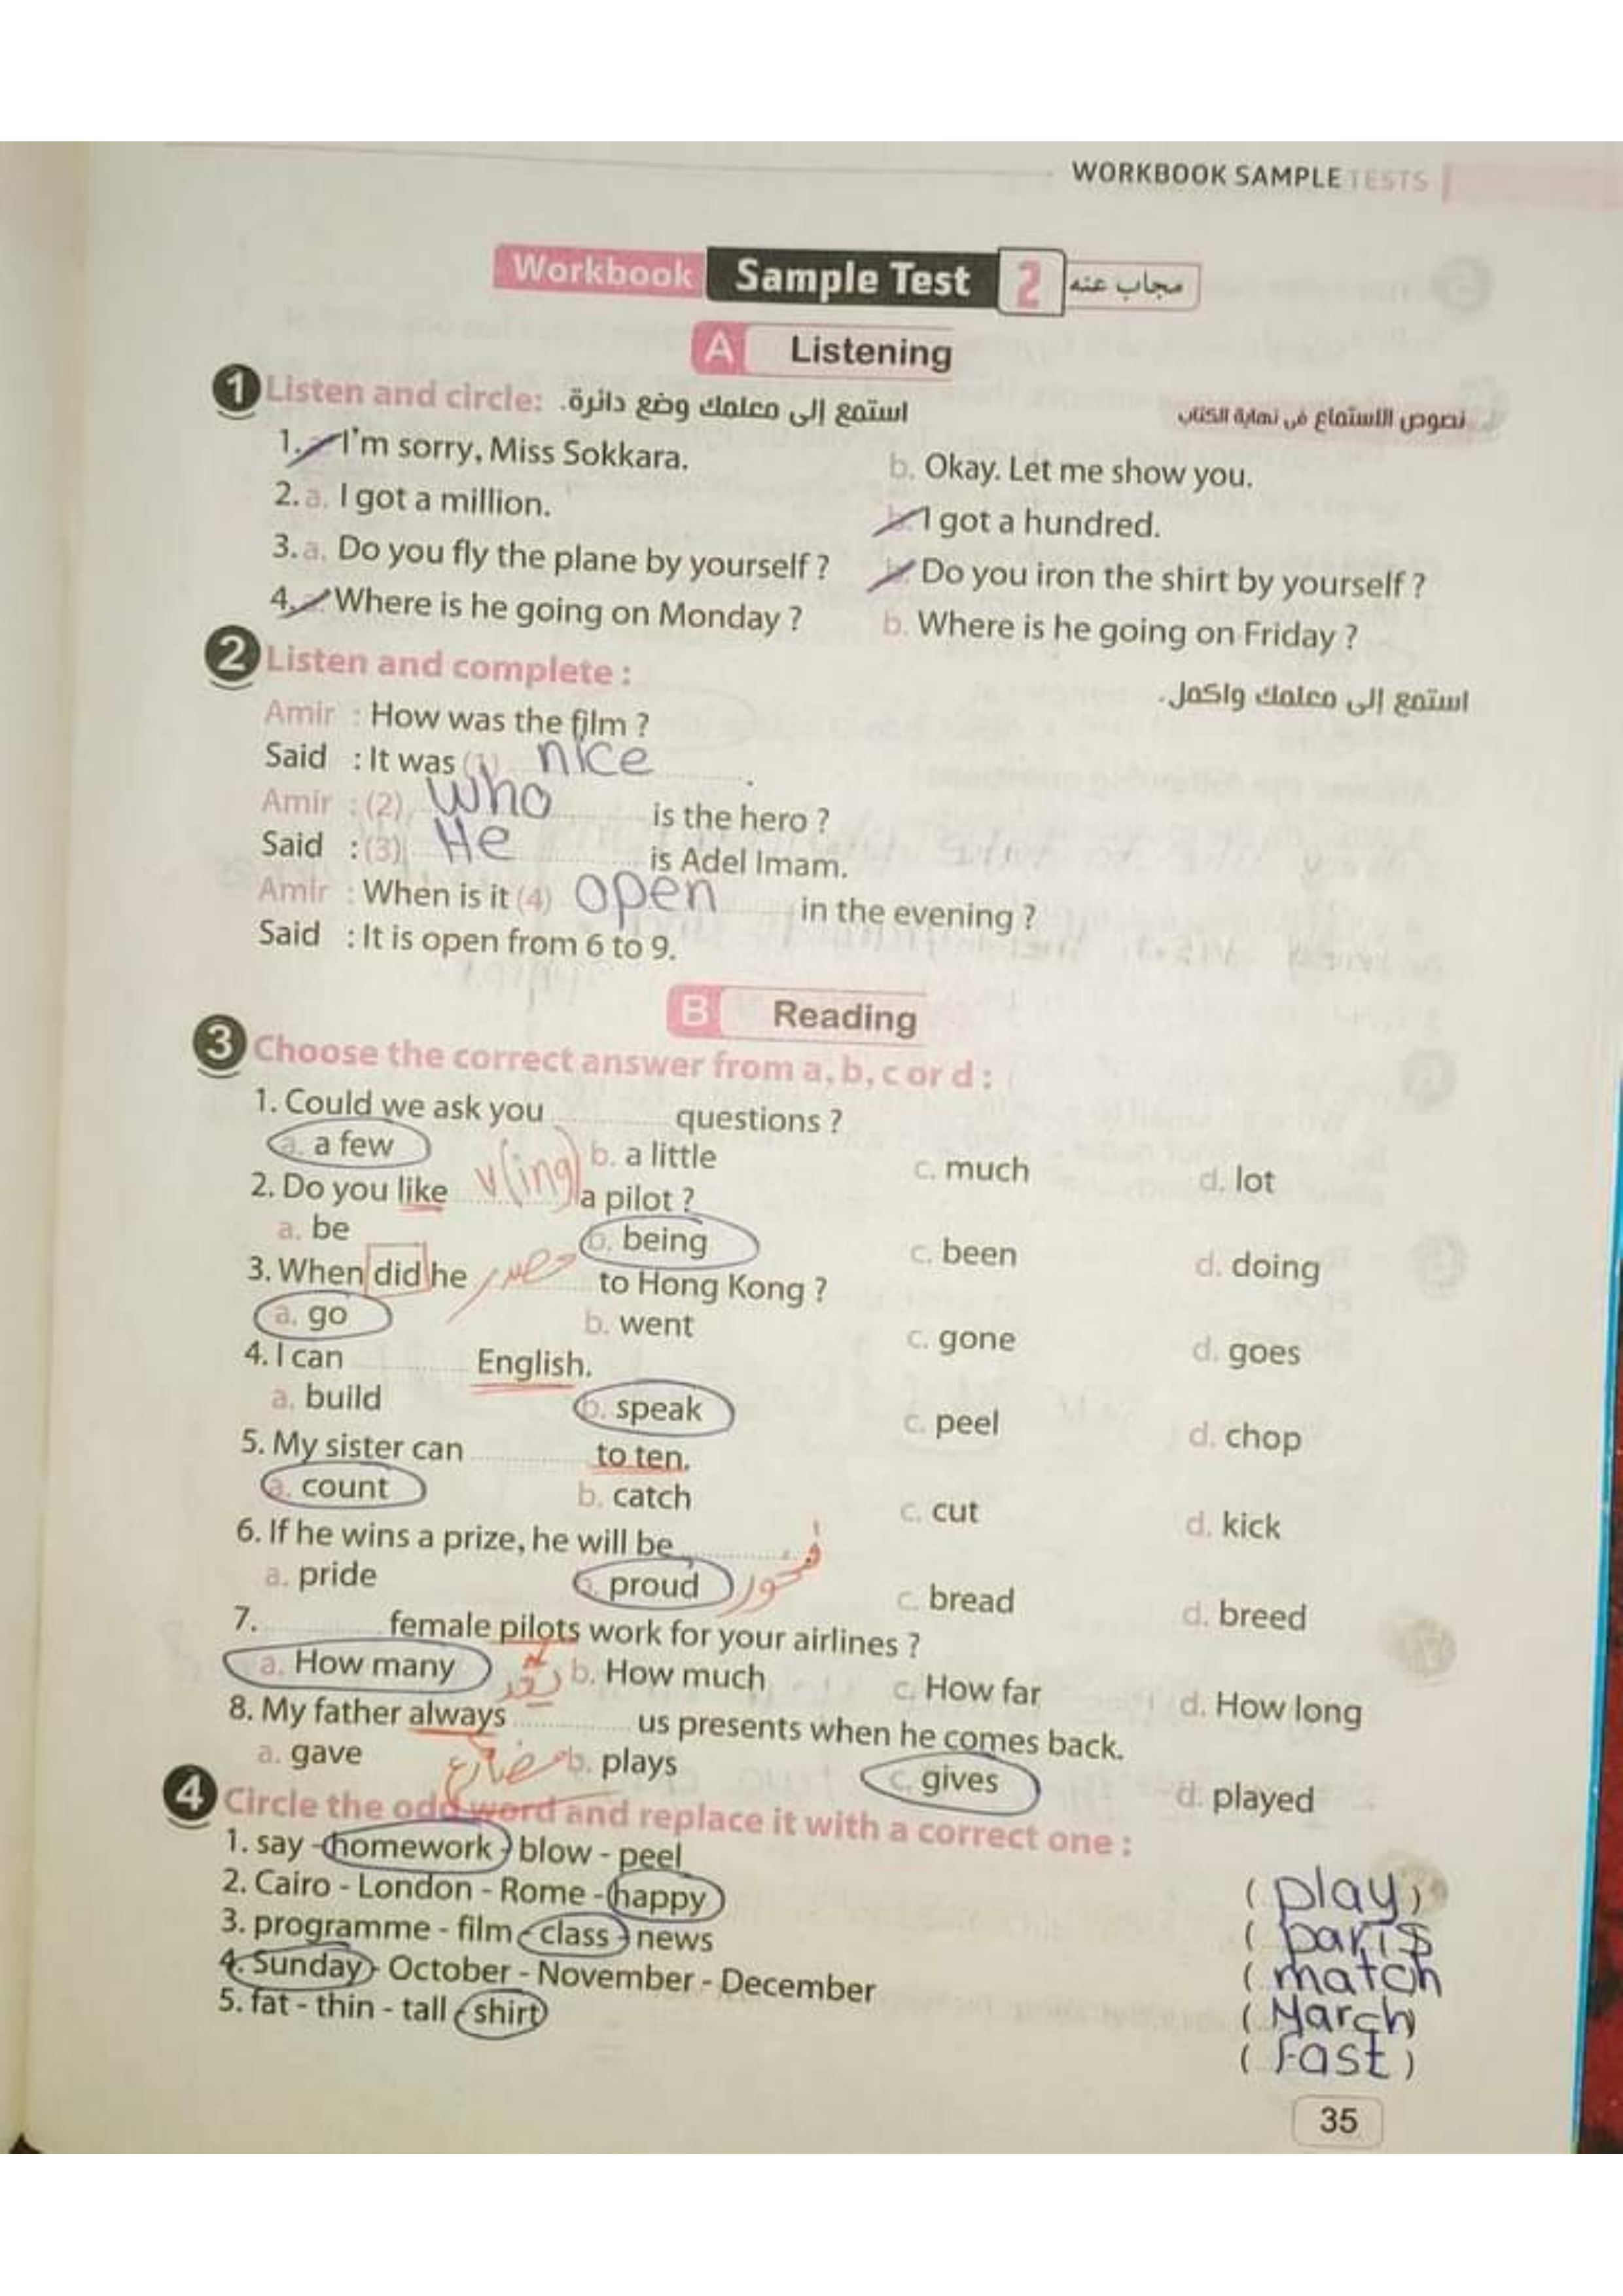 WORKBOOK SAMPLE TESTS
Workbook Sample Test 2 مجاب عنه
A Listening
1 Listen and circle: استمع إلى معلمك وضع دائرة. نصوص الاستماع فى نهاية الكتاب
1. I'm sorry, Miss Sokkara. b. Okay. Let me show you.
2. a. I got a million. b. I got a hundred.
3. a. Do you fly the plane by yourself ? b. Do you iron the shirt by yourself ?
4. Where is he going on Monday ? b. Where is he going on Friday ?
2 Listen and complete :
استمع إلى معلمك واكمل.
Amir : How was the film ?
Said : It was (1) nice .
Amir : (2) who is the hero ?
Said : (3) He is Adel Imam.
Amir : When is it (4) open in the evening ?
Said : It is open from 6 to 9.
B Reading
3 Choose the correct answer from a, b, c or d :
1. Could we ask you ............ questions ?
a. a few b. a little c. much d. lot
2. Do you like v(ing) a pilot ?
a. be b. being c. been d. doing
3. When did he مصدر to Hong Kong ?
a. go b. went c. gone d. goes
4. I can ............ English.
a. build b. speak c. peel d. chop
5. My sister can ............ to ten.
a. count b. catch c. cut d. kick
6. If he wins a prize, he will be ............
a. pride b. proud فخور c. bread d. breed
7. ............ female pilots work for your airlines ?
a. How many يعد b. How much c. How far d. How long
8. My father always ............ us presents when he comes back.
a. gave مضارع b. plays c. gives d. played
4 Circle the odd word and replace it with a correct one :
1. say - homework - blow - peel ( play )
2. Cairo - London - Rome - happy ( paris
3. programme - film - class - news ( match
4. Sunday - October - November - December ( March
5. fat - thin - tall - shirt ( Fast )
35